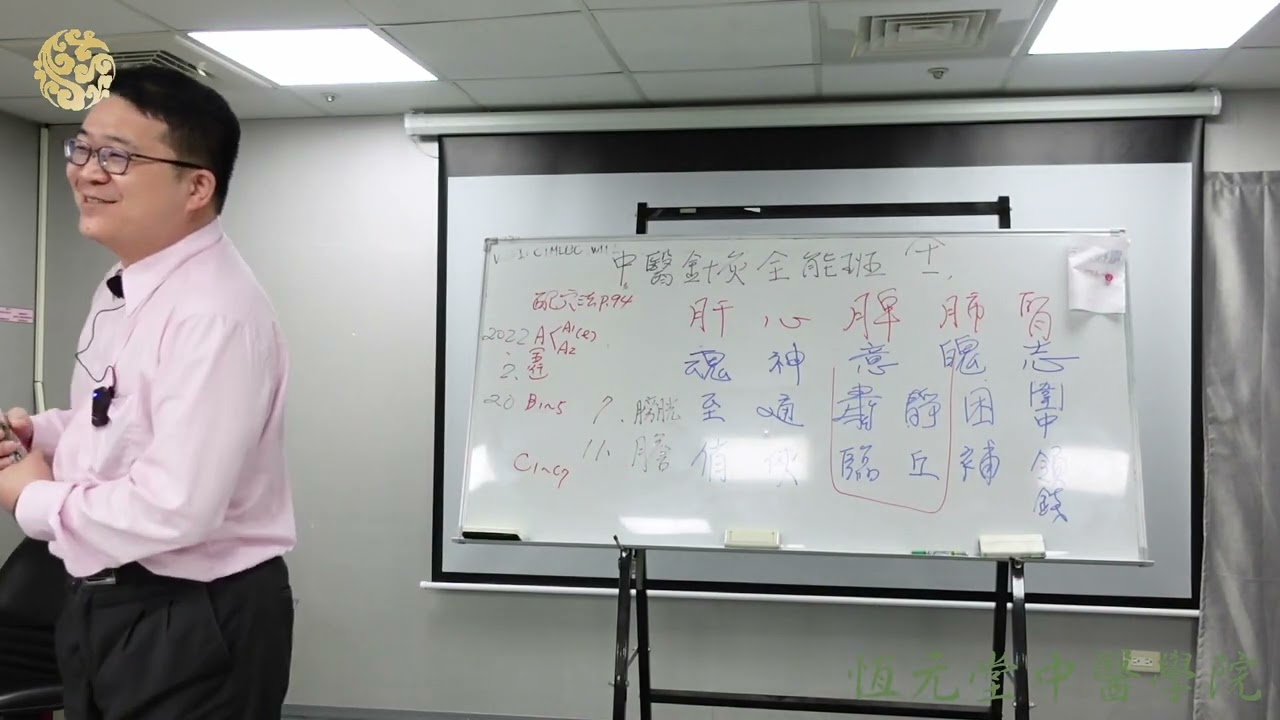 中醫針灸全能班
配穴法P.94
肝 心 脾 肺 腎
2022 A A1 A2
魂 神 意 魄 志
2.
20 B1~5 7. 膀胱 至 適 靜 困 圍中
11. 膽 俏 臨 丘 補
C1~C7
恒元堂中醫學院